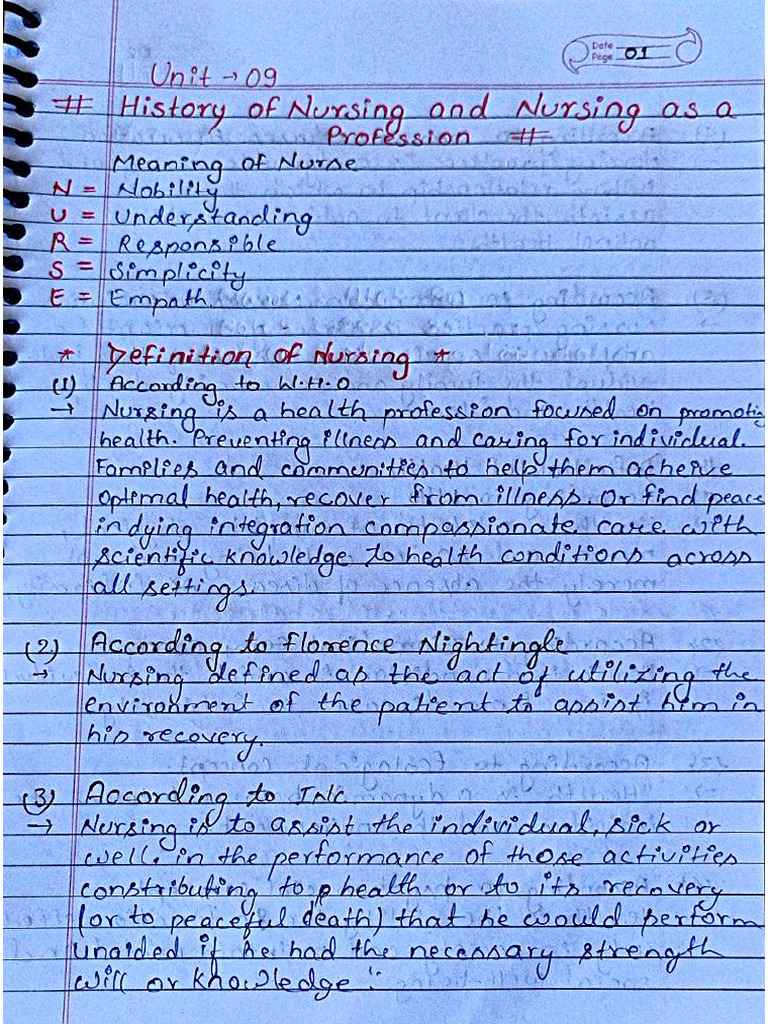 Date
Page 01
Unit → 09
# History of Nursing and Nursing as a
Profession #
Meaning of Nurse
N = Nobility
U = Understanding
R = Responsible
S = Simplicity
E = Empath.
* Definition of Nursing *
(1) According to W.H.O
→ Nursing is a health profession focused on promoting
health. Preventing illness and caring for individual.
Families and communities to help them acheive
optimal health, recover from illness. Or find peace
in dying integration compassionate care with
scientific knowledge to health conditions across
all settings.
(2) According to Florence Nightingle
→ Nursing defined as the act of utilizing the
environment of the patient to assist him in
his recovery.
(3) According to INC
→ Nursing is to assist the individual, sick or
well. in the performance of those activities
constributing to health or to its recovery
(or to peaceful death) that he would perform
unaided if he had the necessary strength
will or knowledge